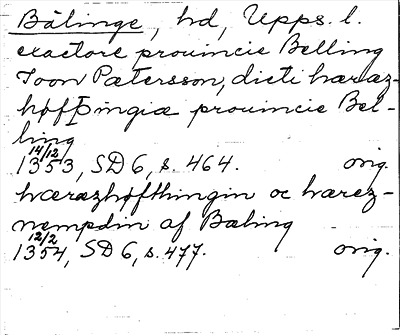 Bälinge, hd, Upps. l.
exactore prouincie Belling
Joon Pætersson, dicti hæræz-
høffþingiæ prouincie Bel-
ling
14/12
1353, SD 6, s. 464. orig.
hæræzhøfthingin oc hærez-
næmpdin af Bæling
12/2
1354, SD 6, s. 477. orig.